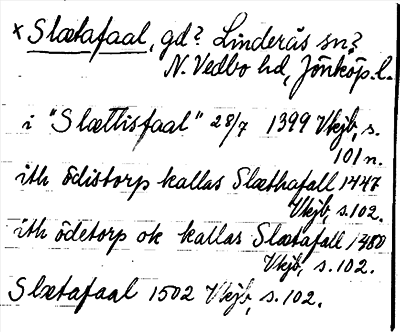 × Slætafaal, gd? Linderås sn?
N. Vedbo hd, Jönköp. l.
i "Slættisfaal" 28/7 1399 Vkjb, s.
101 n.
ith ödistorp kallas Slæthafall 1447
Vkjb, s. 102.
ith ödetorp ok kallas Slætafall 1480
Vkjb, s. 102.
Slætafaal 1502 Vkjb, s. 102.